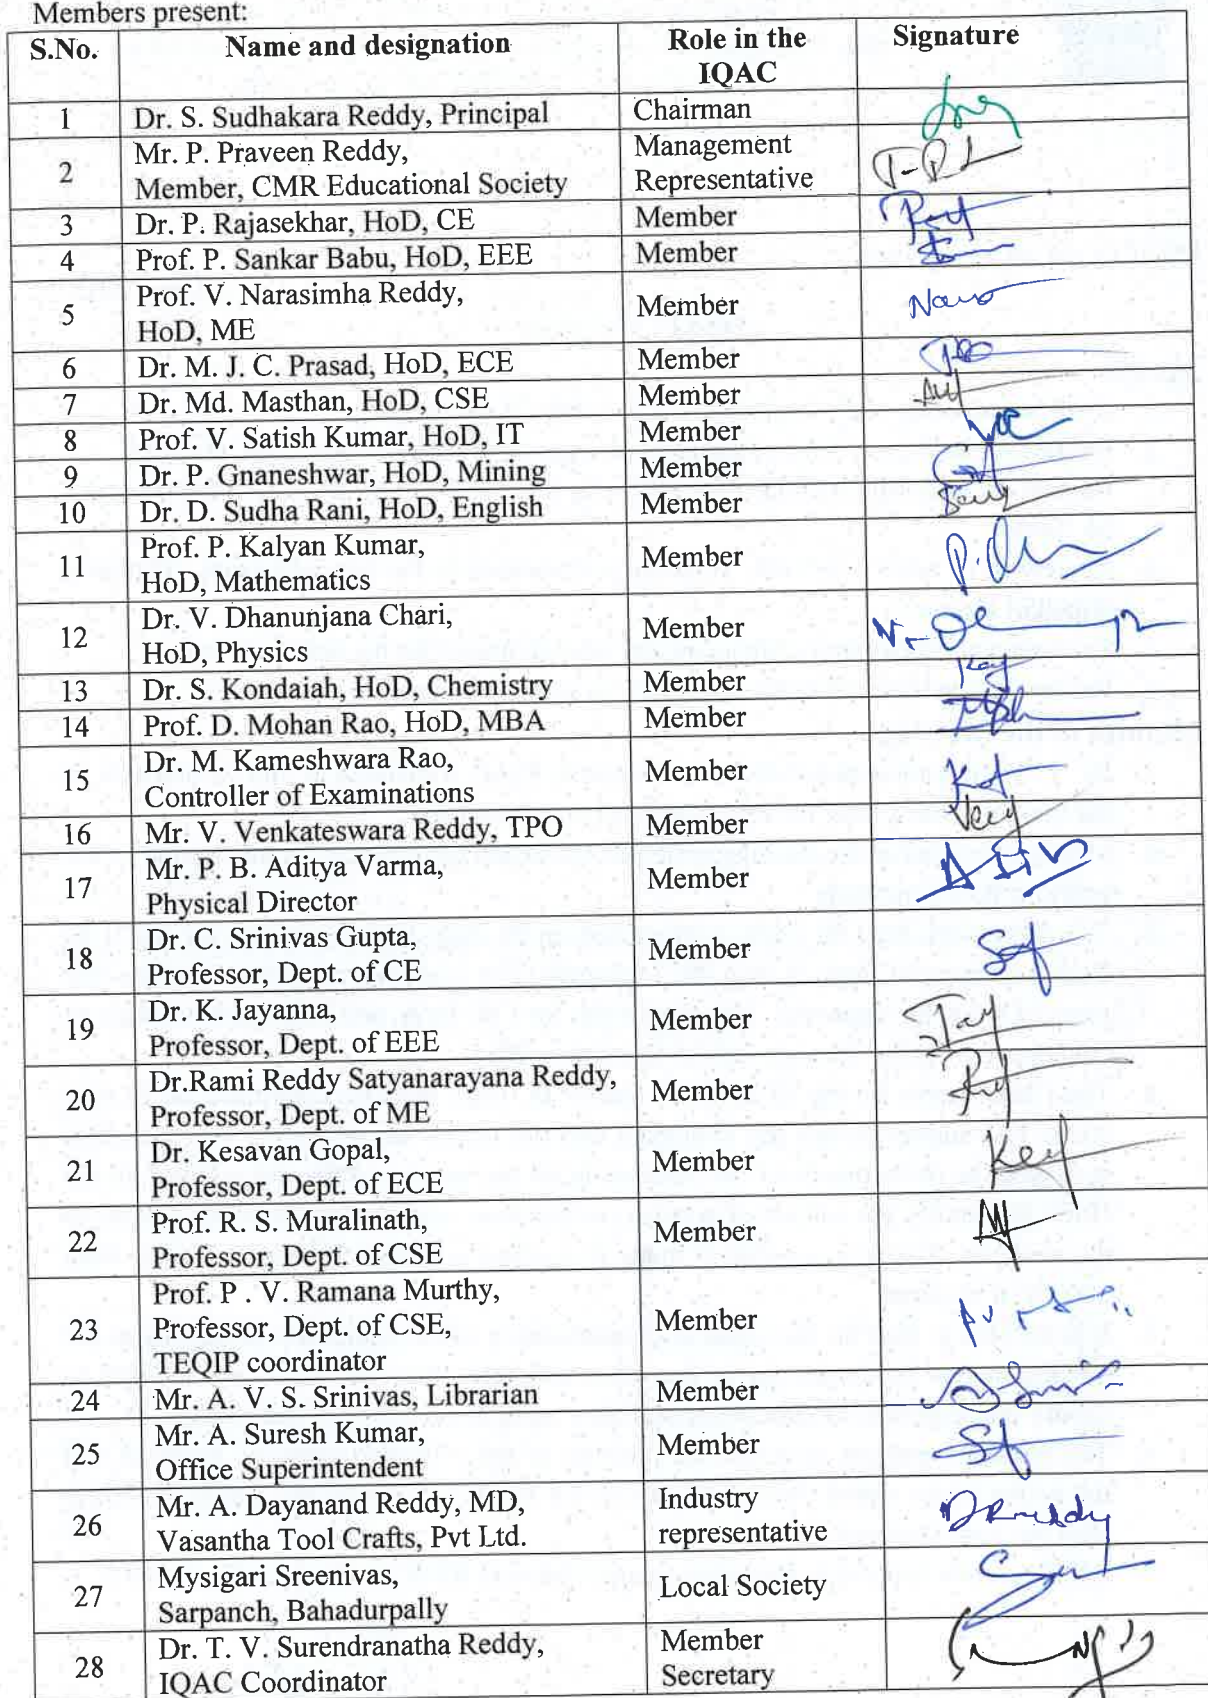 Members present:
S.No. Name and designation Role in the Signature
IQAC
1 Dr. S. Sudhakara Reddy, Principal Chairman
2 Mr. P. Praveen Reddy, Management
Member, CMR Educational Society Representative
3 Dr. P. Rajasekhar, HoD, CE Member
4 Prof. P. Sankar Babu, HoD, EEE Member
5 Prof. V. Narasimha Reddy, Member
HoD, ME
6 Dr. M. J. C. Prasad, HoD, ECE Member
7 Dr. Md. Masthan, HoD, CSE Member
8 Prof. V. Satish Kumar, HoD, IT Member
9 Dr. P. Gnaneshwar, HoD, Mining Member
10 Dr. D. Sudha Rani, HoD, English Member
11 Prof. P. Kalyan Kumar, Member
HoD, Mathematics
12 Dr. V. Dhanunjana Chari, Member
HoD, Physics
13 Dr. S. Kondaiah, HoD, Chemistry Member
14 Prof. D. Mohan Rao, HoD, MBA Member
15 Dr. M. Kameshwara Rao, Member
Controller of Examinations
16 Mr. V. Venkateswara Reddy, TPO Member
17 Mr. P. B. Aditya Varma, Member
Physical Director
18 Dr. C. Srinivas Gupta, Member
Professor, Dept. of CE
19 Dr. K. Jayanna, Member
Professor, Dept. of EEE
20 Dr.Rami Reddy Satyanarayana Reddy, Member
Professor, Dept. of ME
21 Dr. Kesavan Gopal, Member
Professor, Dept. of ECE
22 Prof. R. S. Muralinath, Member
Professor, Dept. of CSE
23 Prof. P . V. Ramana Murthy, Member
Professor, Dept. of CSE,
TEQIP coordinator
24 Mr. A. V. S. Srinivas, Librarian Member
25 Mr. A. Suresh Kumar, Member
Office Superintendent
26 Mr. A. Dayanand Reddy, MD, Industry
Vasantha Tool Crafts, Pvt Ltd. representative
27 Mysigari Sreenivas, Local Society
Sarpanch, Bahadurpally
28 Dr. T. V. Surendranatha Reddy, Member
IQAC Coordinator Secretary